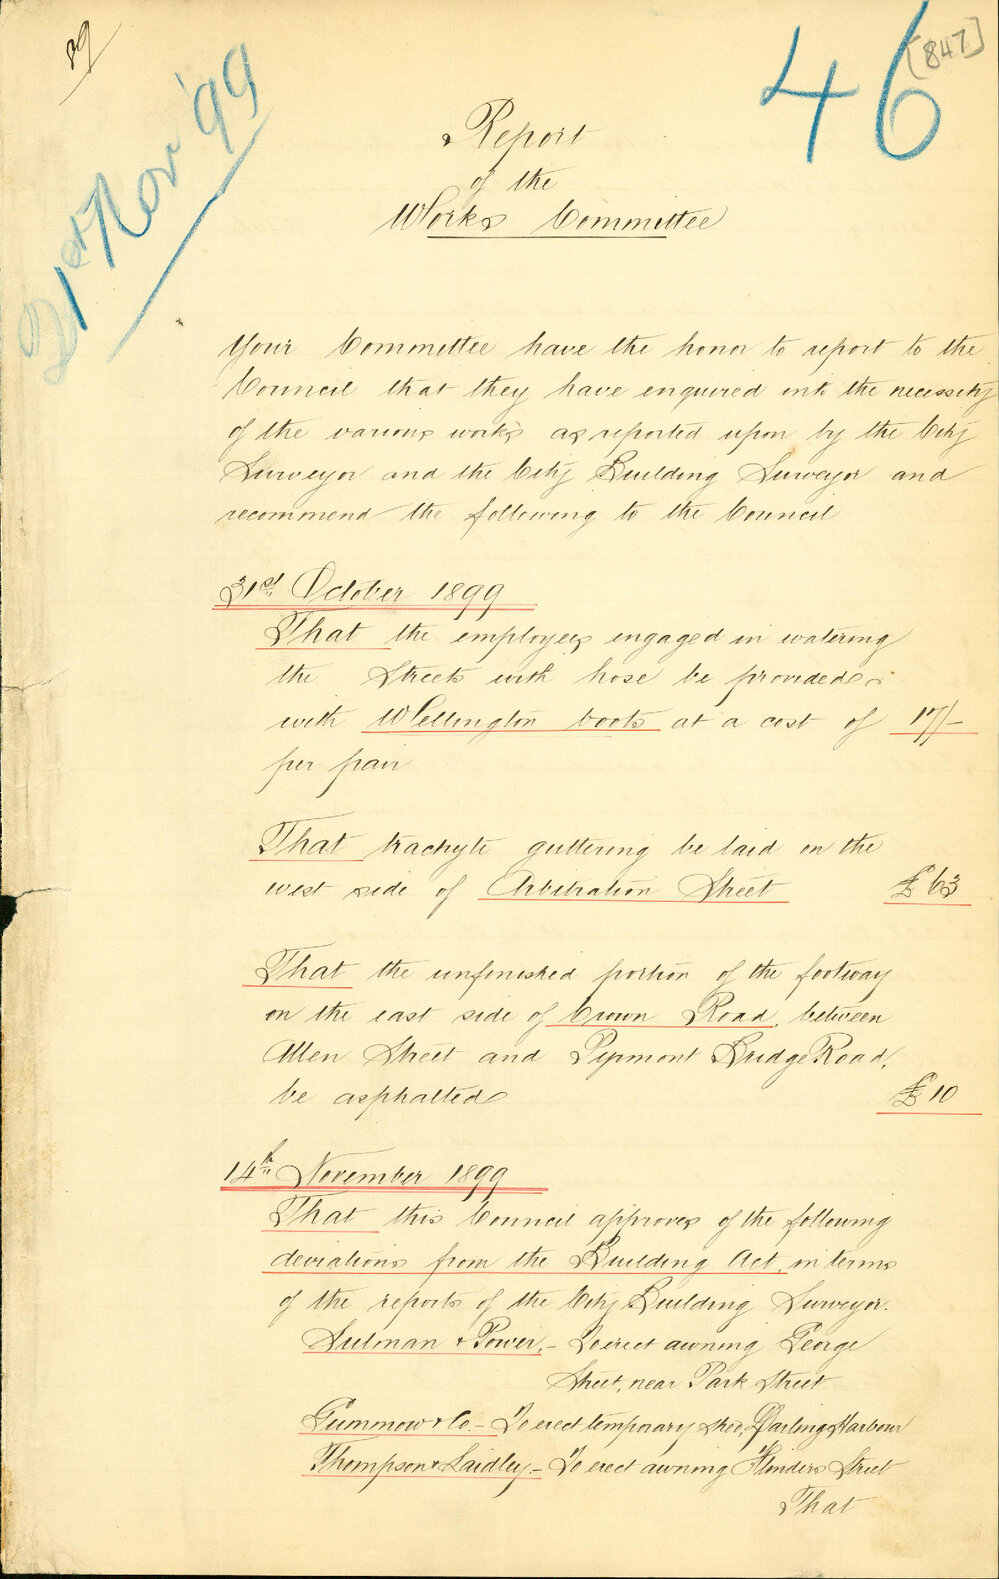 89
21st Nov '99
46
[847]
Report
of the
Works Committee
Your Committee have the honor to report to the
Council that they have enquired into the necessity
of the various works as reported upon by the City
Surveyor and the City Building Surveyor and
recommend the following to the Council
31st October 1899
That the employees engaged in watering
the Streets with hose be provided
with Wellington boots at a cost of 17/-
per pair
That trachyte guttering be laid on the
west side of Arbitration Street £63
That the unfinished portion of the footway
on the east side of Crown Road, between
Allen Street and Pyrmont Bridge Road,
be asphalted £10
14th November 1899
That this Council approves of the following
deviations from the Building Act, in terms
of the reports of the City Building Surveyor.
Sulman & Power, - To erect awning George
Street, near Park Street
Gummow & Co. - To erect temporary shed, Darling Harbour
Thompson & Laidley - To erect awning Flinders Street
That